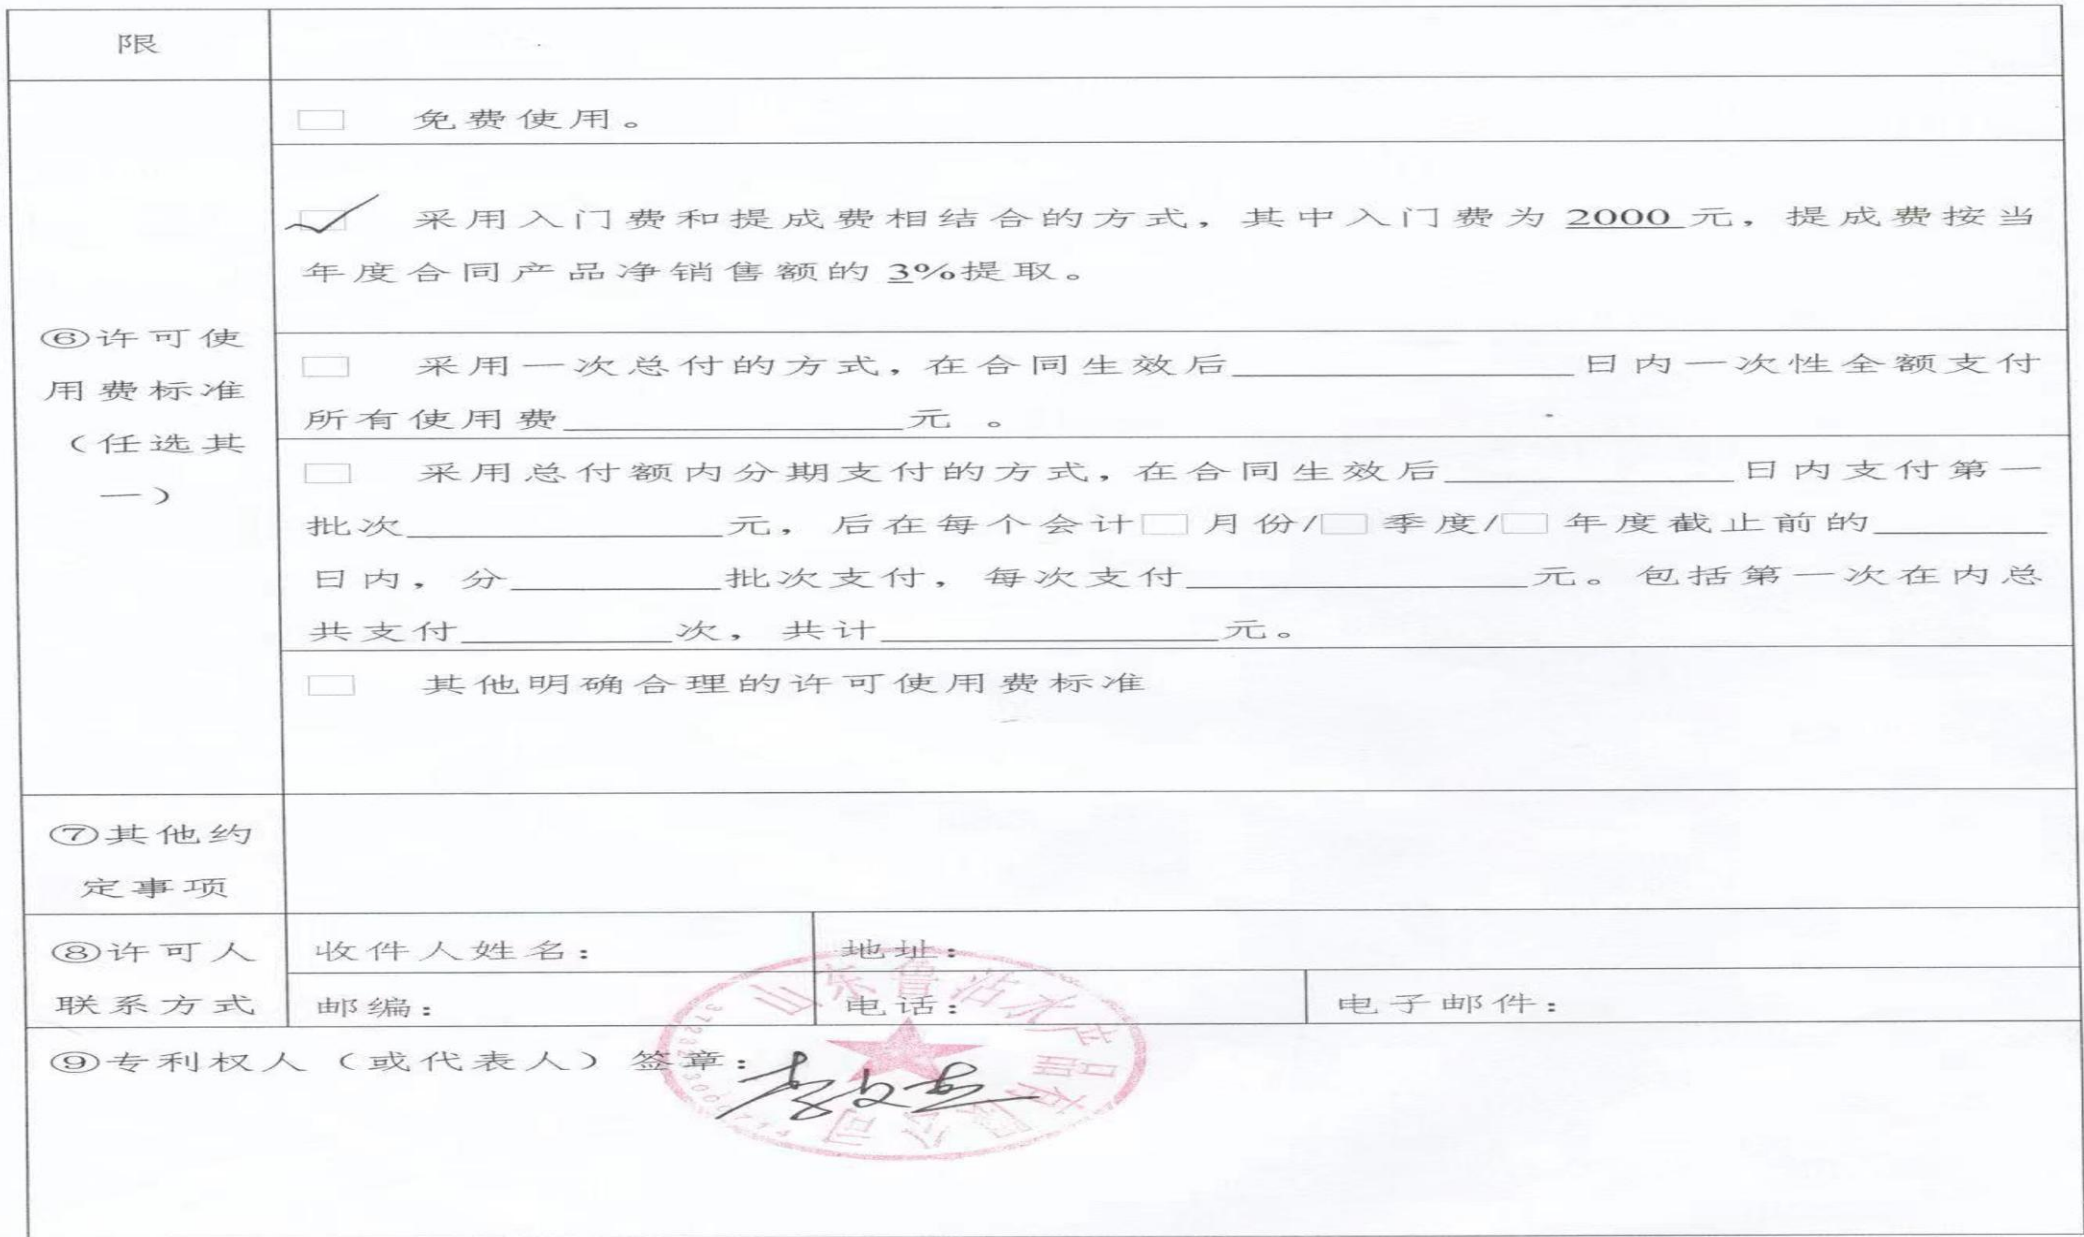 限
免费使用。
采用入门费和提成费相结合的方式，其中入门费为 2000 元，提成费按当
年度合同产品净销售额的 3%提取。
⑥许可使
用费标准
（任选其
一）
采用一次总付的方式，在合同生效后____________日内一次性全额支付
所有使用费____________元 。
采用总付额内分期支付的方式，在合同生效后__________日内支付第一
批次___________元，后在每个会计□月份/□季度/□年度截止前的______
日内，分_______批次支付，每次支付____________元。包括第一次在内总
共支付_______次，共计____________元。
其他明确合理的许可使用费标准
⑦其他约
定事项
⑧许可人
联系方式
收件人姓名：
地址：
邮编：
电话：
电子邮件：
⑨专利权人（或代表人）签章：
水产品有限公司